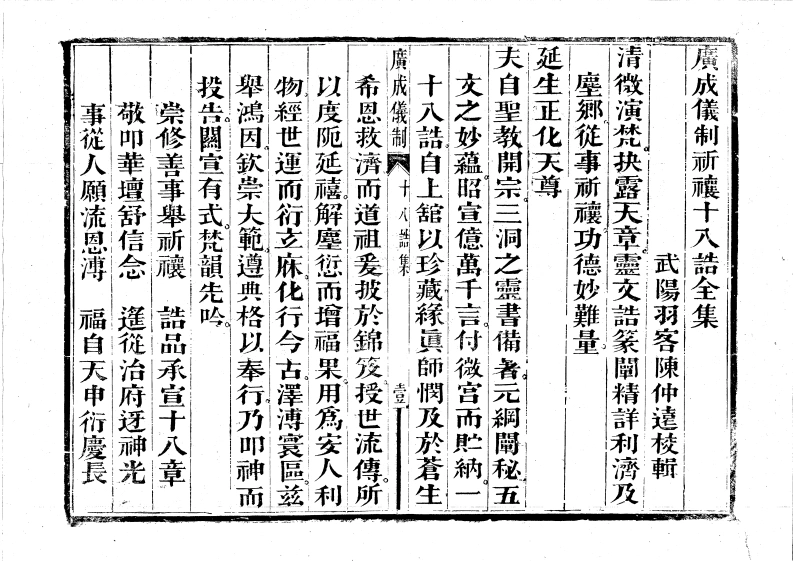 廣成儀制祈禳十八誥全集
武陽羽客陳仲遠校輯
清微演梵抉露天章靈文誥篆闡精詳利濟及
塵鄉從事祈禳功德妙難量
延生正化天尊
夫自聖教開宗三洞之靈書備著元綱闡秘五
文之妙蘊昭宣億萬千言付微宮而貯納一
十八誥自上舘以珍藏緣眞師憫及於蒼生
廣成儀制 十八誥集 壹
希恩救濟而道祖爰披於錦笈授世流傳所
以度阨延禧解塵愆而增福果用爲安人利
物經世運而衍玄庥化行今古澤溥寰區兹
舉鴻因欽崇大範遵典格以奉行乃叩神而
投告關宣有式梵韻先吟
崇修善事舉祈禳 誥品承宣十八章
敬叩華壇舒信念 遙從治府迓神光
事從人願流恩溥 福自天申衍慶長